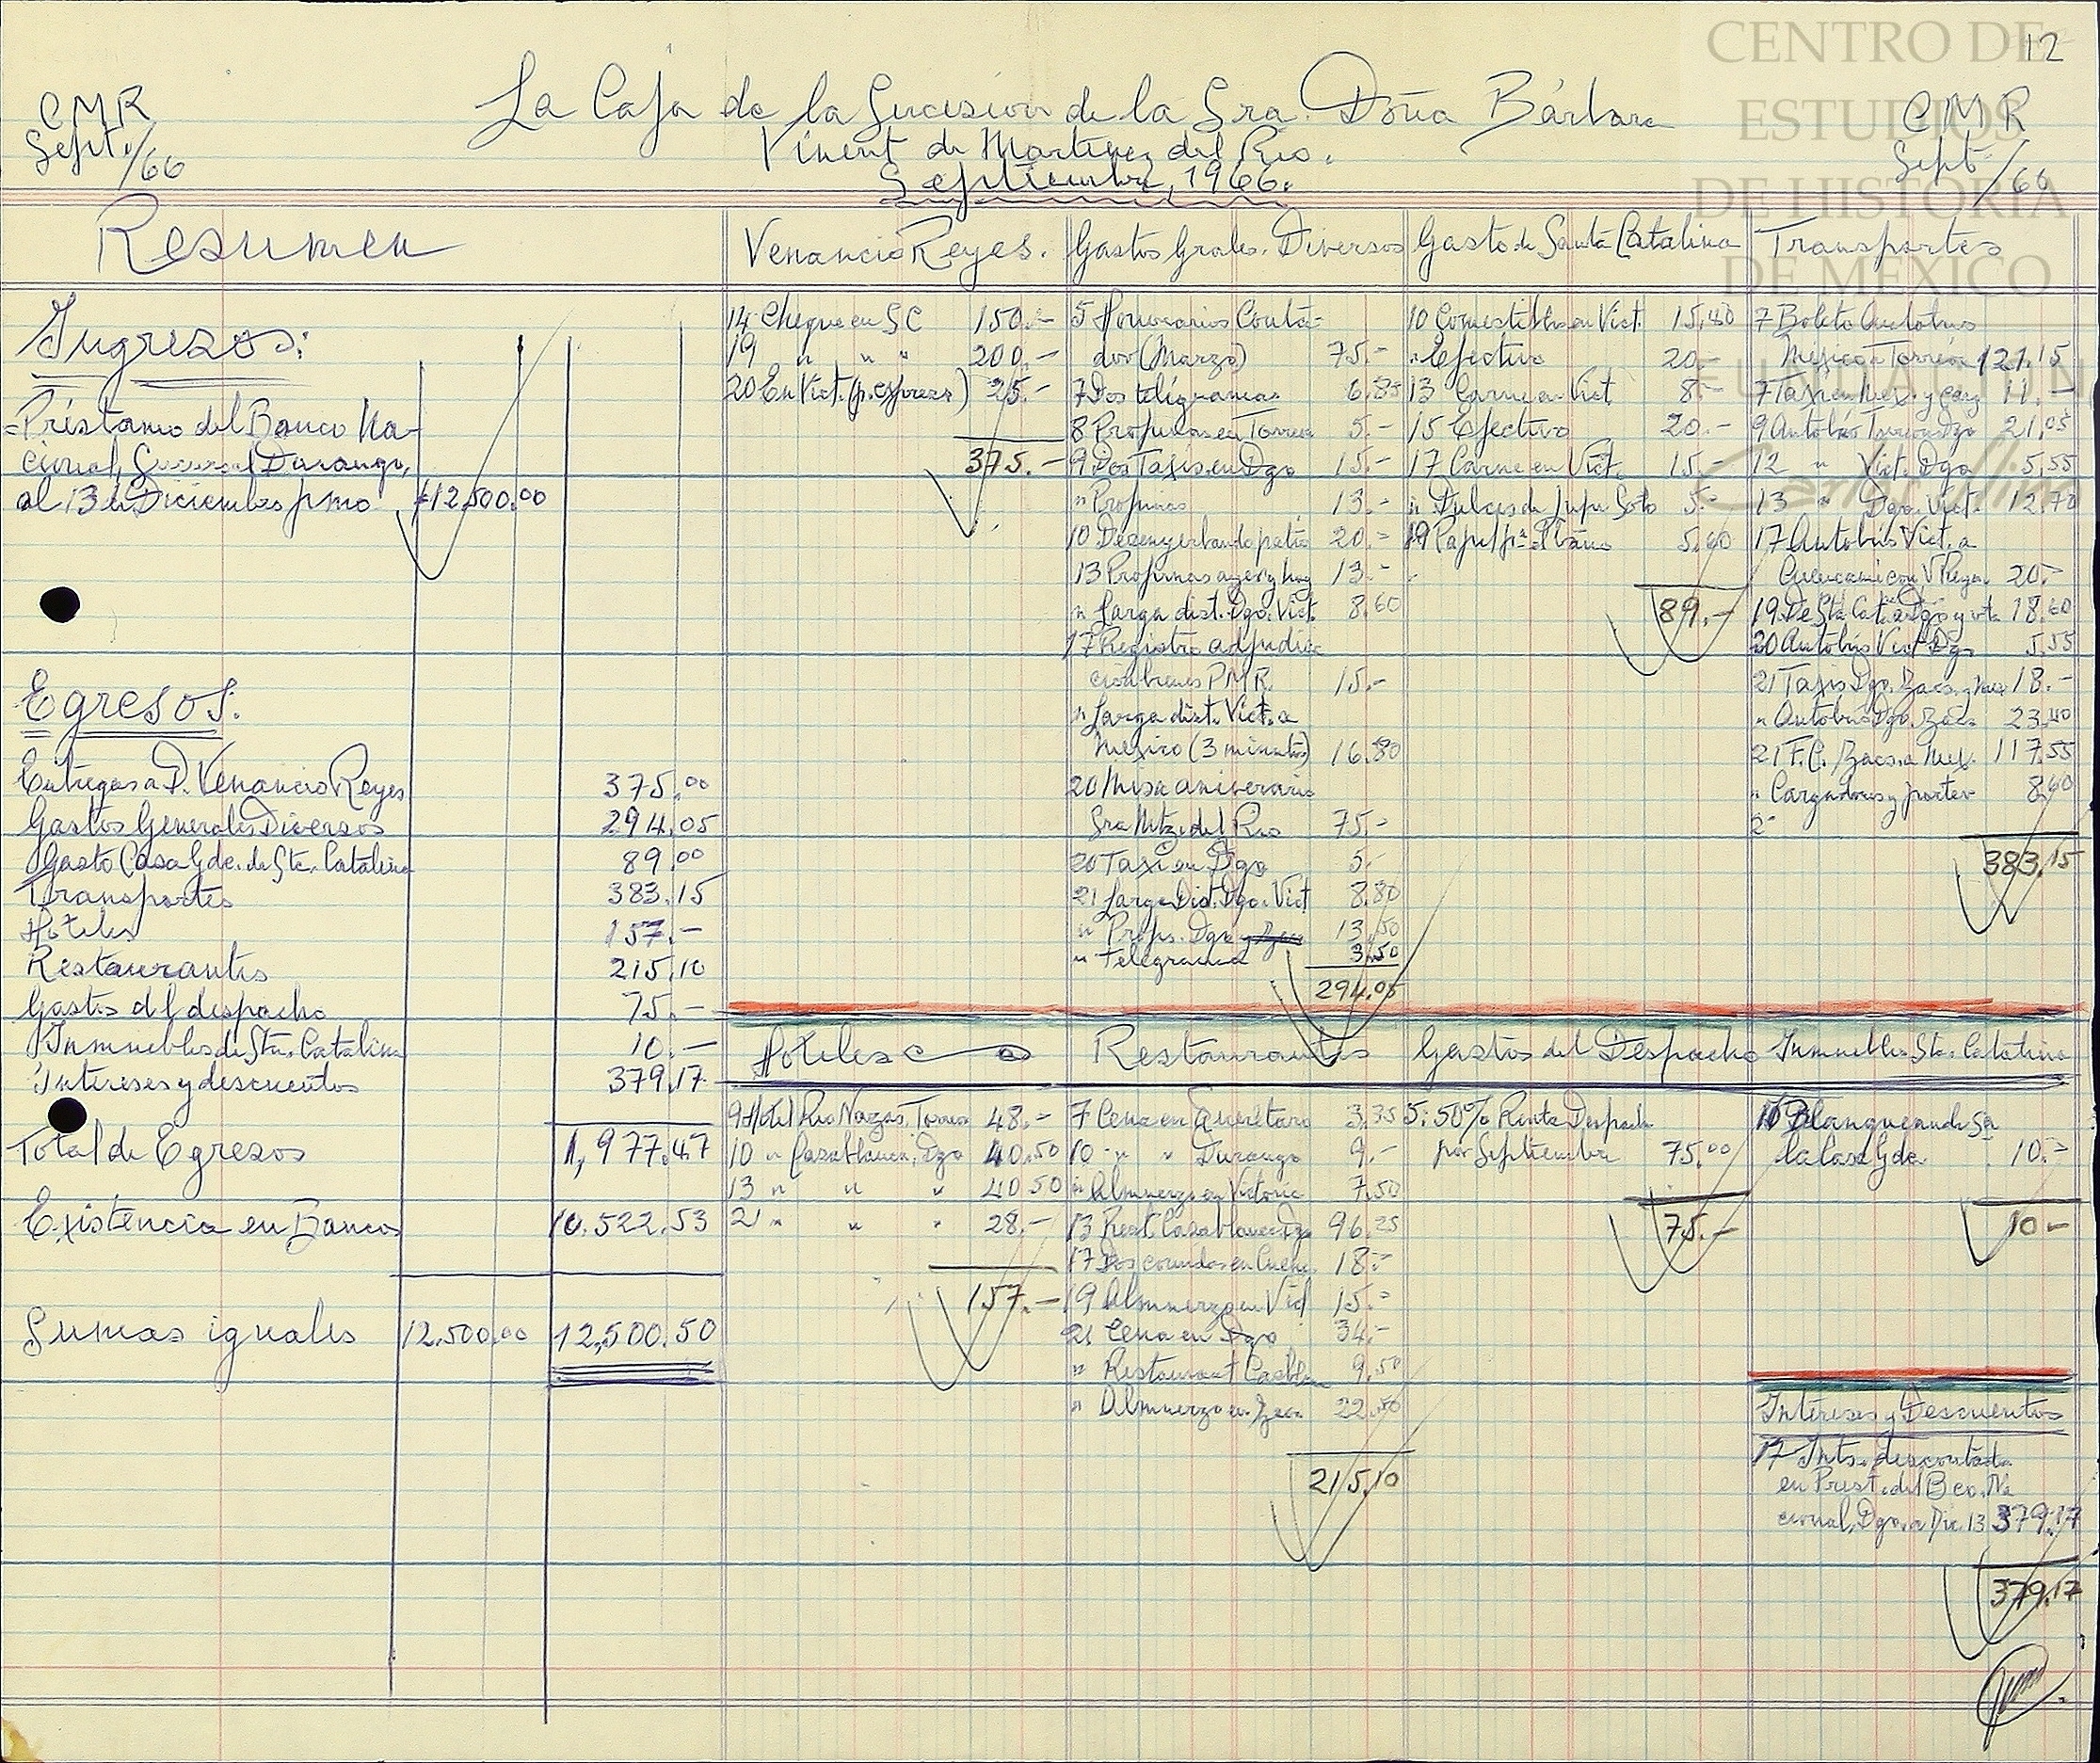 CENTRO DE
ESTUDIOS
DE HISTORIA
DE MÉXICO
FUNDACIÓN
Carlos Slim
12
CMR
Sept./66
La Caja de la Sucesión de la Sra. Doña Bárbara
Vinent de Martínez del Río.
Septiembre, 1966.
CMR
Sept./66
Resumen
Ingresos:
Préstamo del Banco Na-
cional, Sucursal Durango,
al 13 de Diciembre pmo $12,500.00
Egresos.
Entregas a D. Venancio Reyes 375.00
Gastos Generales Diversos 294.05
Gasto Casa Gde. de Sta. Catalina 89.00
Transportes 383.15
Hoteles 157.-
Restaurantes 215.10
Gastos del despacho 75.-
Inmuebles de Sta. Catalina 10.-
Intereses y descuentos 379.17
Total de Egresos 1,977.47
Existencia en Bancos 10.522.53
Sumas iguales 12.500.00 12,500.50
Venancio Reyes.
14 Cheque en SC 150.-
19 " " " 200.-
20 En Vict. (p. expreso) 25.-
375.-
Gastos Grales. Diversos
5 Honorarios Conta-
dor (Marzo) 75.-
7 Dos telegramas 6.85
8 Propinas en Torreón 5.-
9 Dos Taxis en Dgo 15.-
" Propinas 13.-
10 Desenyerbando patio 20.-
13 Propinas ayer y hoy 13.-
" Larga dist. Dgo. Vict. 8.60
17 Registro adjudica
ción bienes PMR. 15.-
" Larga dist. Vict. a
Mexico (3 minutos) 16.80
20 Misa aniversario
Sra Mtz. del Rio 75.-
20 Taxi en Dgo 5.-
21 Larga Dist. Dgo. Vict 8.80
" Props. Dgo 13.50
" Telegrama 3.50
294.05
Gasto de Santa Catalina
10 Comestibles en Vict. 15.40
" Efectivo 20.-
13 Carne en Vict 8.-
15 Efectivo 20.-
17 Carne en Vict. 15.-
" Dulces de Soto 5.-
19 5.60
89.-
Transportes
7 Boleto Autobus
Mexico a Torreón 121.15
7 Taxi en Mex. y carg 11.-
9 Autobús Torreon Dgo 21.05
12 " Vict. Dgo 5.55
13 " Dgo. Vict. 12.70
17 Autobús Vict. a
Cuencamé con V Reyes 20.-
19 De Sta. Cat. a Dgo y vta 18.60
20 Autobús Vict Dgo 5.55
21 Taxis Dgo. Zacs. y Mex 18.-
" Autobús Dgo. Zacs 23.40
21 F.C. Zacs. a Mex. 117.55
" Cargadores y porter 8.60
2
383.15
Hoteles
9 Hotel Rio Nazas. Torreon 48.-
10 " Casablanca, Dgo 40.50
13 " " " 40 50
21 " " " 28.-
157.-
Restaurantes
7 Cena en Querétaro 3.35
10 " " Durango 9.-
" Almuerzo en Victoria 7.50
13 Rest. Casablanca Dgo 96.25
17 Dos comidas en Cuenc. 18.-
19 Almuerzo en Vict 15.-
21 Cena en Dgo 34.-
" Restaurant Casblan 9.50
" Almuerzo en Zacs. 22.50
215.10
Gastos del Despacho
5. 50% Renta Despacho
por Septiembre 75.00
75.-
Inmuebles Sta. Catalina
10 Blanqueando Sa
la Casa Gde. 10.-
10-
Intereses y Descuentos
17 Ints. descontados
en Prest. del Bco. Na
cional, Dgo. a Dic. 13 379.17
379.17